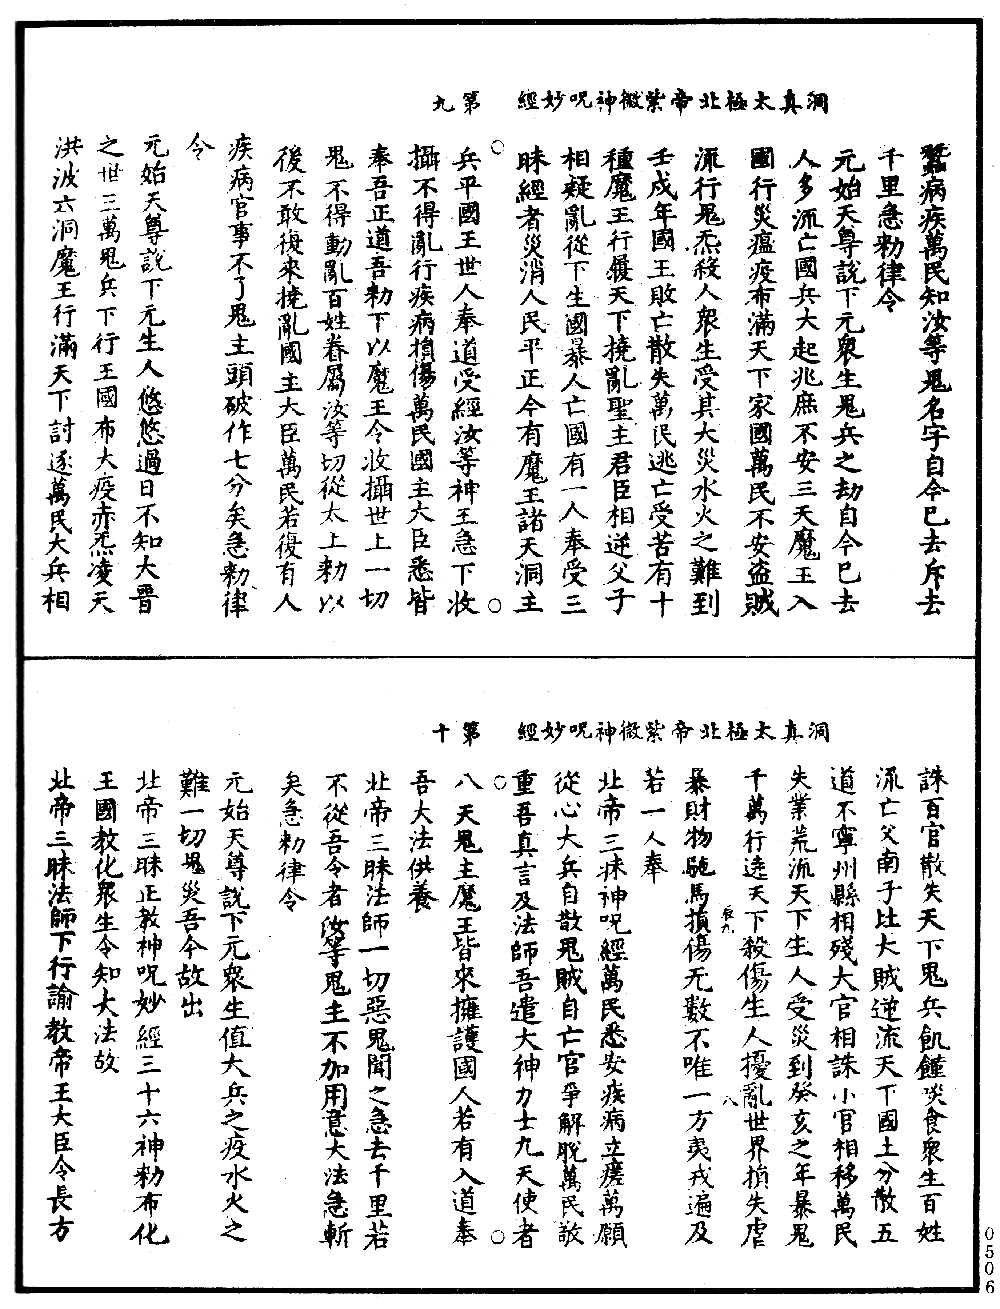 洞真太極北帝紫微神呪妙經　第九
蠶病疾萬民知汝等鬼名字自今已去斥去
千里急勑律令
元始天尊說下元衆生鬼兵之劫自今已去
人多流亡國兵大起兆庶不安三天魔王入
國行災瘟疫布滿天下家國萬民不安盜賊
流行鬼炁殺人衆生受其大災水火之難到
壬戌年國王敗亡散失萬民逃亡受苦有十
種魔王行履天下撓亂聖主君臣相逆父子
相疑亂從下生國暴人亡國有一人奉受三
昧經者災消人民平正今有魔王諸天洞主
兵平國王世人奉道受經汝等神王急下收
攝不得亂行疾病損傷萬民國主大臣悉皆
奉吾正道吾勑下以魔王令收攝世上一切
鬼不得動亂百姓眷屬汝等切從太上勑以
後不敢復來撓亂國主大臣萬民若復有人
疾病官事不了鬼主頭破作七分矣急勑律
令
元始天尊說下元生人悠悠過日不知大晋
之世三萬鬼兵下行王國布大疫赤炁凌天
洪波六洞魔王行滿天下討逐萬民大兵相
洞真太極北帝紫微神呪妙經　第十
誅百官散失天下鬼兵飢饉啖食衆生百姓
流亡父南子北大賊逆流天下國土分散五
道不寧州縣相殘大官相誅小官相移萬民
失業荒流天下生人受災到癸亥之年暴鬼
千萬行遶天下殺傷生人擾亂世界損失虐
辰九　八
暴財物馳馬損傷无數不唯一方夷戎遍及
若一人奉
北帝三昧神呪經萬民悉安疾病立瘥萬願
從心大兵自散鬼賊自亡官爭解脫萬民敬
重吾真言及法師吾遣大神力士九天使者
八天鬼主魔王皆來擁護國人若有入道奉
吾大法供養
北帝三昧法師一切惡鬼聞之急去千里若
不從吾令者汝等鬼主不加用意大法急斬
矣急勑律令
元始天尊說下元衆生值大兵之疫水火之
難一切鬼災吾今故出
北帝三昧正教神呪妙經三十六神勑布化
王國教化衆生令知大法故
北帝三昧法師下行諭教帝王大臣令長方
0506